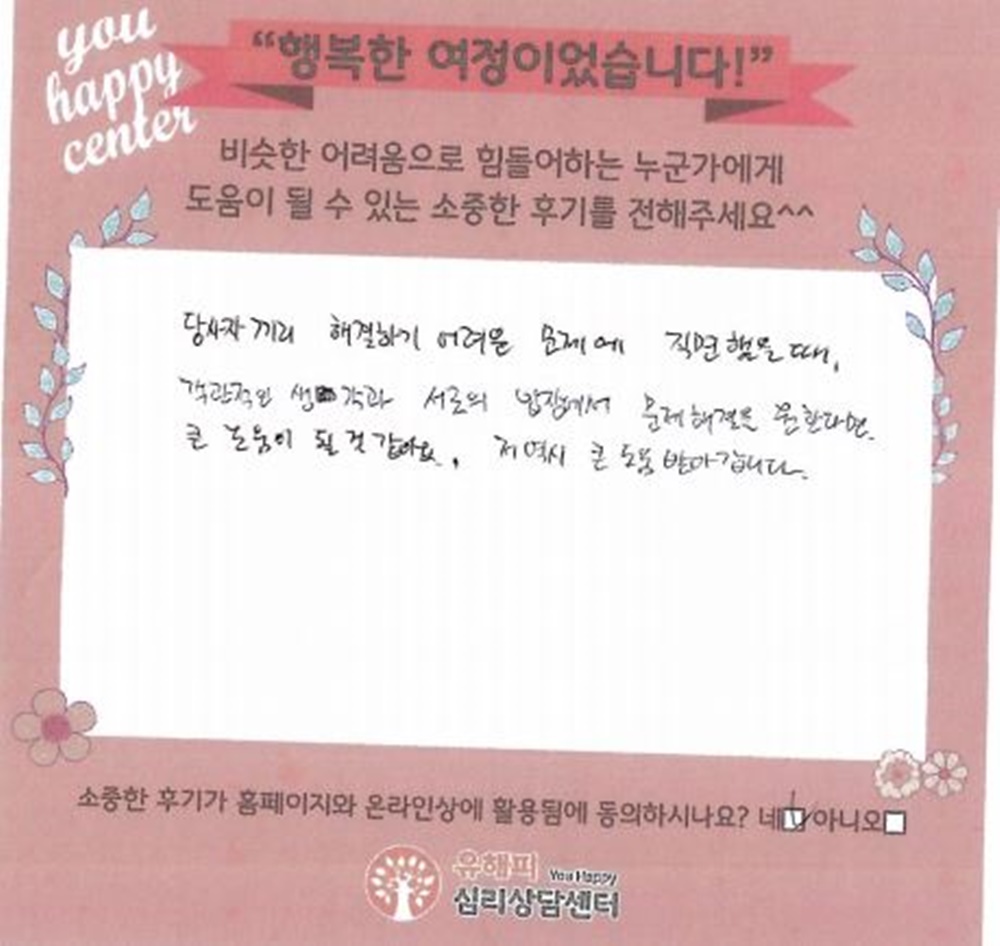 you
happy
center
“행복한 여정이었습니다!”
비슷한 어려움으로 힘들어하는 누군가에게
도움이 될 수 있는 소중한 후기를 전해주세요^^
당사자끼리 해결하기 어려운 문제에 직면했을 때,
객관적인 생각과 서로의 입장에서 문제해결을 원한다면.
큰 도움이 될 것 같아요. 저 역시 큰 도움 받아갑니다.
소중한 후기가 홈페이지와 온라인상에 활용됨에 동의하시나요? 네 아니오
유해피 You Happy
심리상담센터